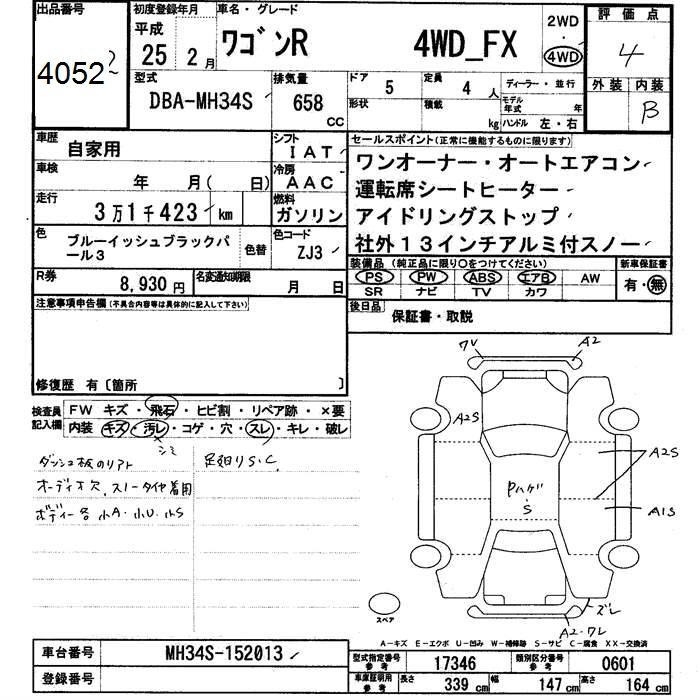 出品番号
4052
初度登録年月
平成
25 年 2 月
車名・グレード
ワゴンR 4WD_FX
2WD
・
4WD
評価点
4
外装 内装
B
型式
DBA-MH34S
排気量
658
CC
ドア 5
定員 4 人
ディーラー・並行
形状
積載 kg
モデル年式 年
ハンドル 左・右
車歴 自家用
シフト IAT
車検 年 月( 日)
冷房 AAC
走行 3万1千423 km
燃料 ガソリン
色 ブルーイッシュブラックパール3
色替
色コード ZJ3
R券 8,930 円
名変通知期限 月 日
セールスポイント(正常に機能するものに限ります)
ワンオーナー・オートエアコン
運転席シートヒーター
アイドリングストップ
社外13インチアルミ付スノー
装備品 (純正品に限り○をつけてください)
PS PW ABS エアB AW
SR ナビ TV カワ
新車保証書
有・無
後日品 保証書・取説
注意事項申告欄(不具合内容等は具体的に記入して下さい)
修復歴 有〔箇所 〕
検査員記入欄
FW キズ・飛石・ヒビ割・リペア跡・×要
内装 キズ・汚レ・コゲ・穴・スレ・キレ・破レ
シミ
ダッシュ板のリフト
足廻りS.C
オーディオ欠.スノータイヤ着用
ボディー各小A.小U.小S
ワレ
A2
A2S
A2S
Pハゲ
・S
A1S
ズレ
A2・ワレ
スペア
A-キズ E-エクボ U-凹み W-補修跡 S-サビ C-腐食 XX-交換済
車台番号 MH34S-152013
登録番号
型式指定番号参考 17346
類別区分番号参考 0601
車庫証明用参考
長さ 339 cm
幅 147 cm
高さ 164 cm